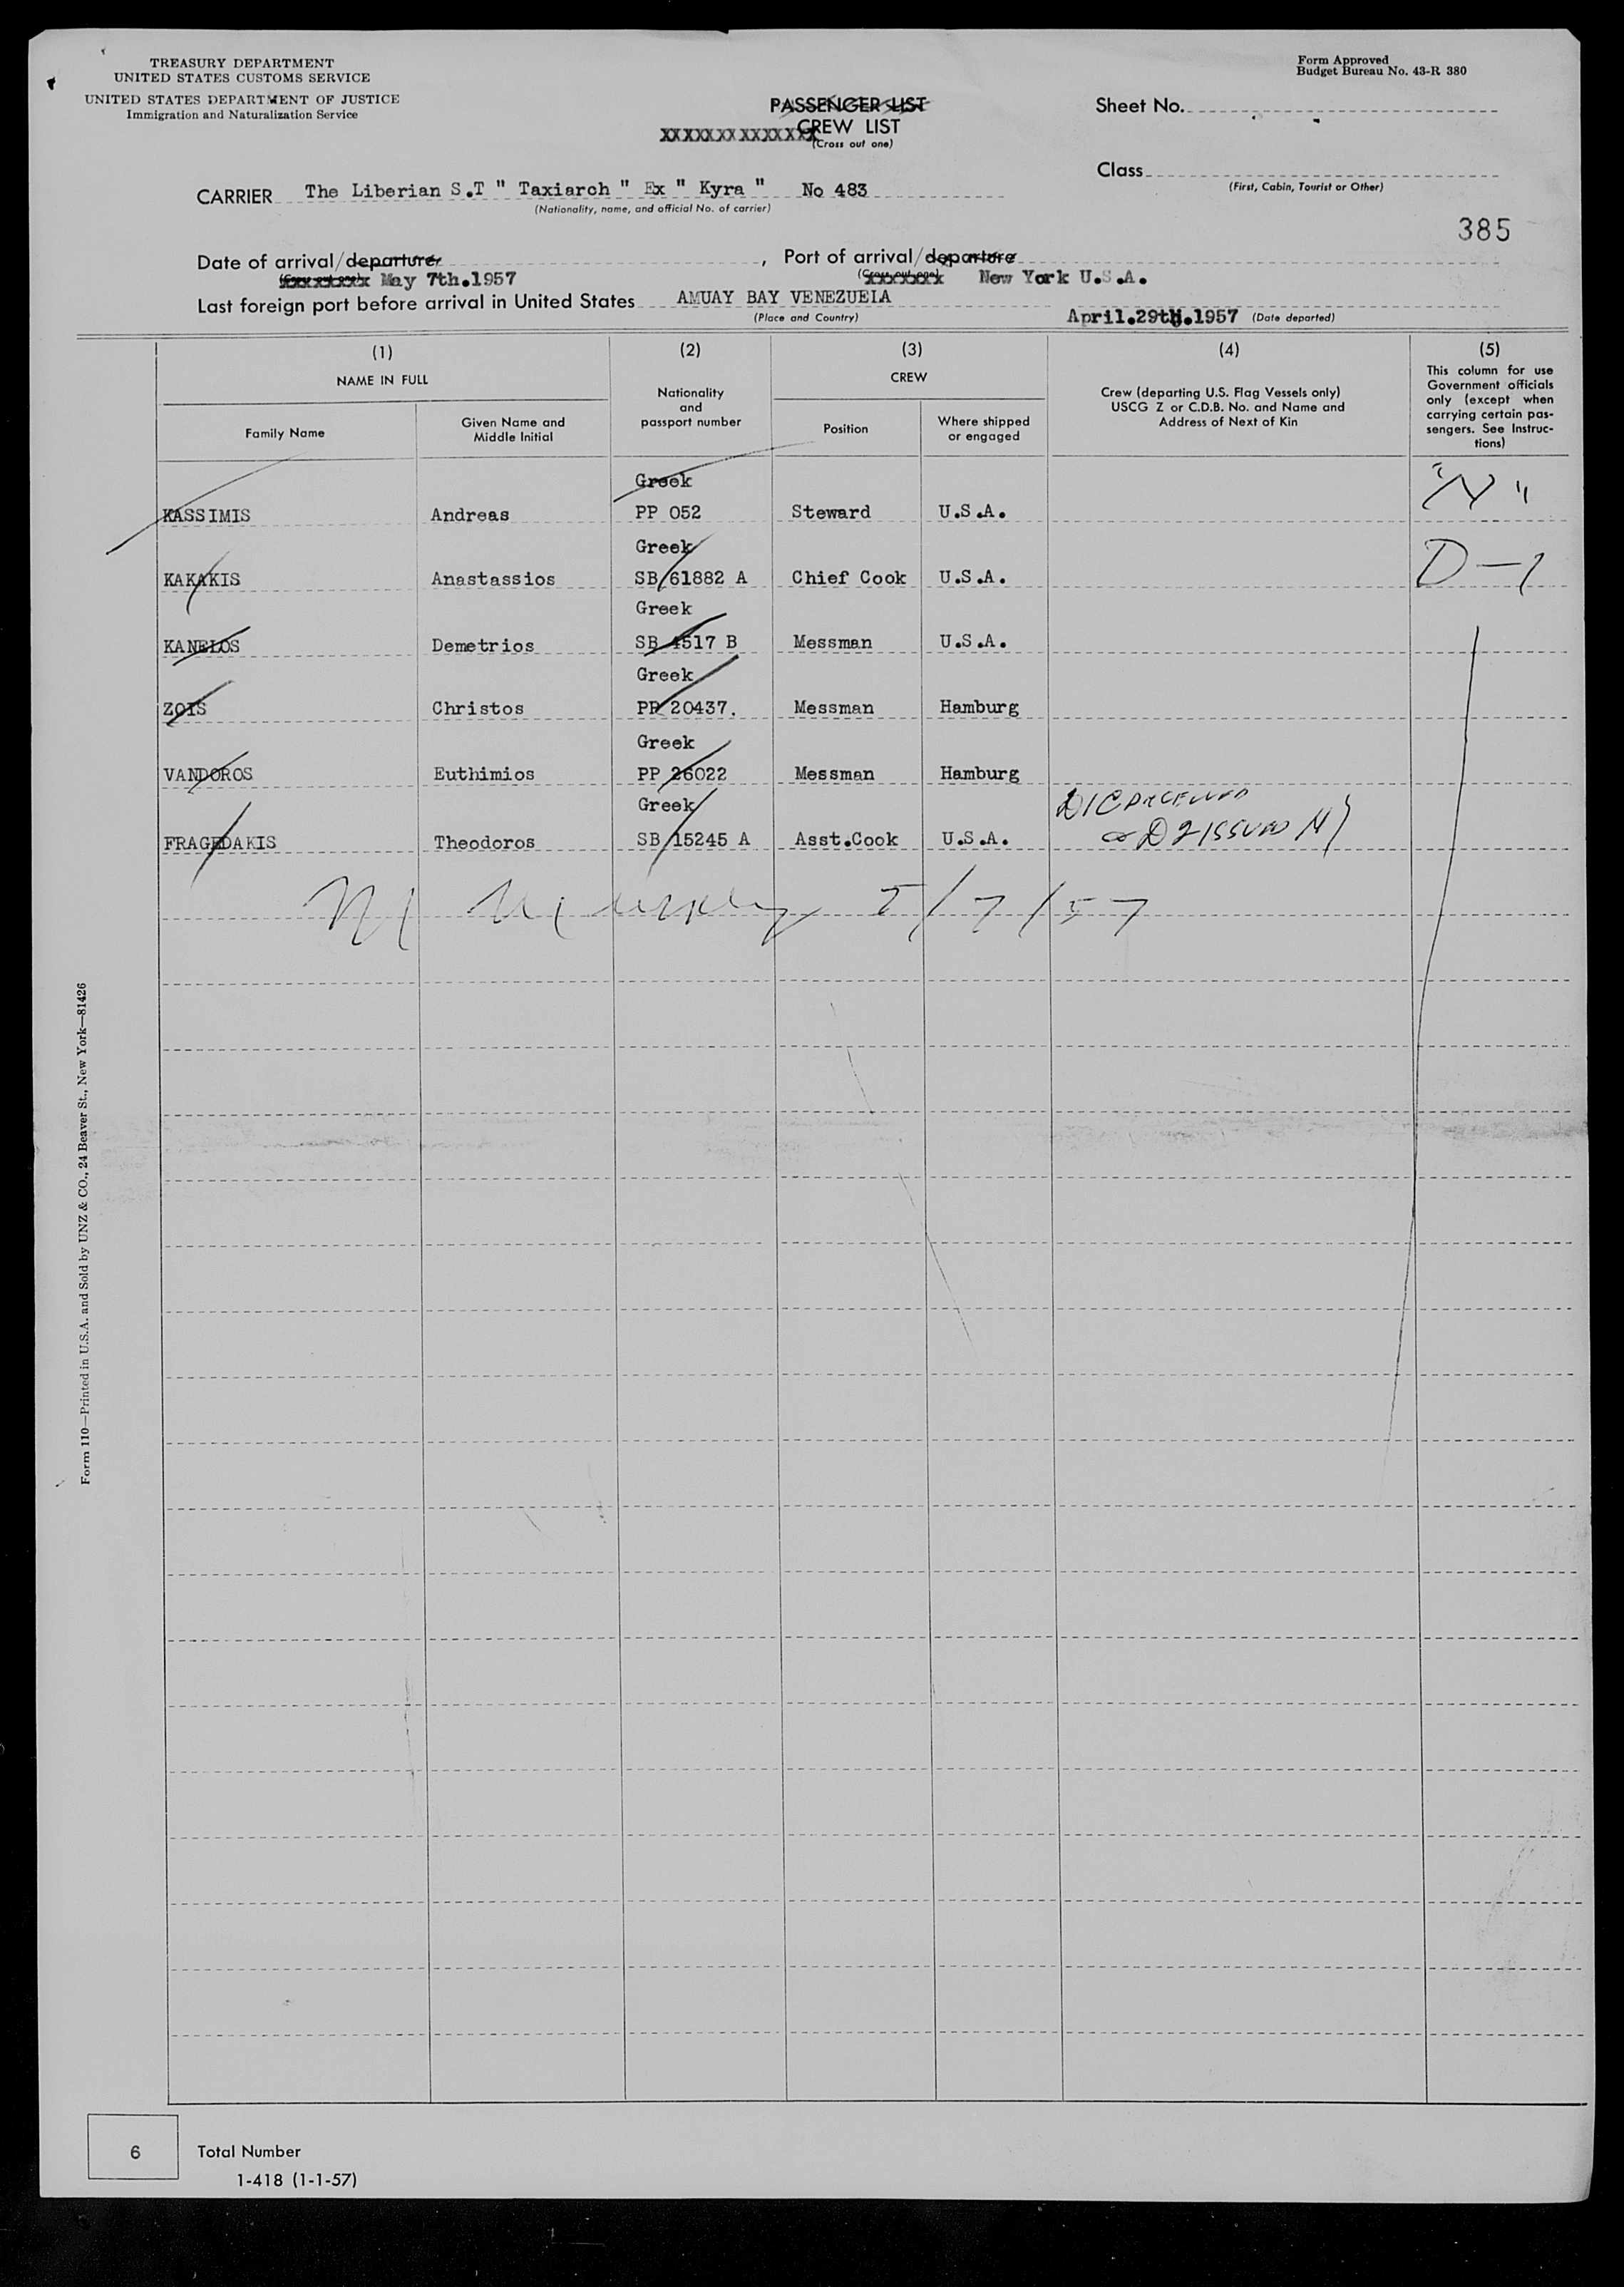 TREASURY DEPARTMENT
UNITED STATES CUSTOMS SERVICE
UNITED STATES DEPARTMENT OF JUSTICE
Immigration and Naturalization Service
Form Approved
Budget Bureau No. 43-R 380
PASSENGER LIST
XXXXXXXXXXXXXX CREW LIST
(Cross out one)
Sheet No.
Class
(First, Cabin, Tourist or Other)
CARRIER The Liberian S.T " Taxiarch " Ex " Kyra " No 483
(Nationality, name, and official No. of carrier)
385
Date of arrival/departure, Port of arrival/departure
May 7th.1957 New York U.S.A.
Last foreign port before arrival in United States AMUAY BAY VENEZUELA
(Place and Country)
April.29th.1957 (Date departed)
(1) (2) (3) (4) (5)
NAME IN FULL
Family Name
Given Name and Middle Initial
Nationality and passport number
CREW
Position
Where shipped or engaged
Crew (departing U.S. Flag Vessels only)
USCG Z or C.D.B. No. and Name and
Address of Next of Kin
This column for use
Government officials
only (except when
carrying certain pas-
sengers. See Instruc-
tions)
Greek
KASSIMIS Andreas PP 052 Steward U.S.A. "N"
Greek
KAKAKIS Anastassios SB 61882 A Chief Cook U.S.A. D-1
Greek
KANELOS Demetrios SB 4517 B Messman U.S.A.
Greek
ZOIS Christos PP 20437. Messman Hamburg
Greek
VANDOROS Euthimios PP 26022 Messman Hamburg
Greek
FRAGEDAKIS Theodoros SB 15245 A Asst.Cook U.S.A.
D2 ISSUED
5/7/57
Form 110—Printed in U.S.A. and Sold by UNZ & CO., 24 Beaver St., New York—81426
6 Total Number
1-418 (1-1-57)